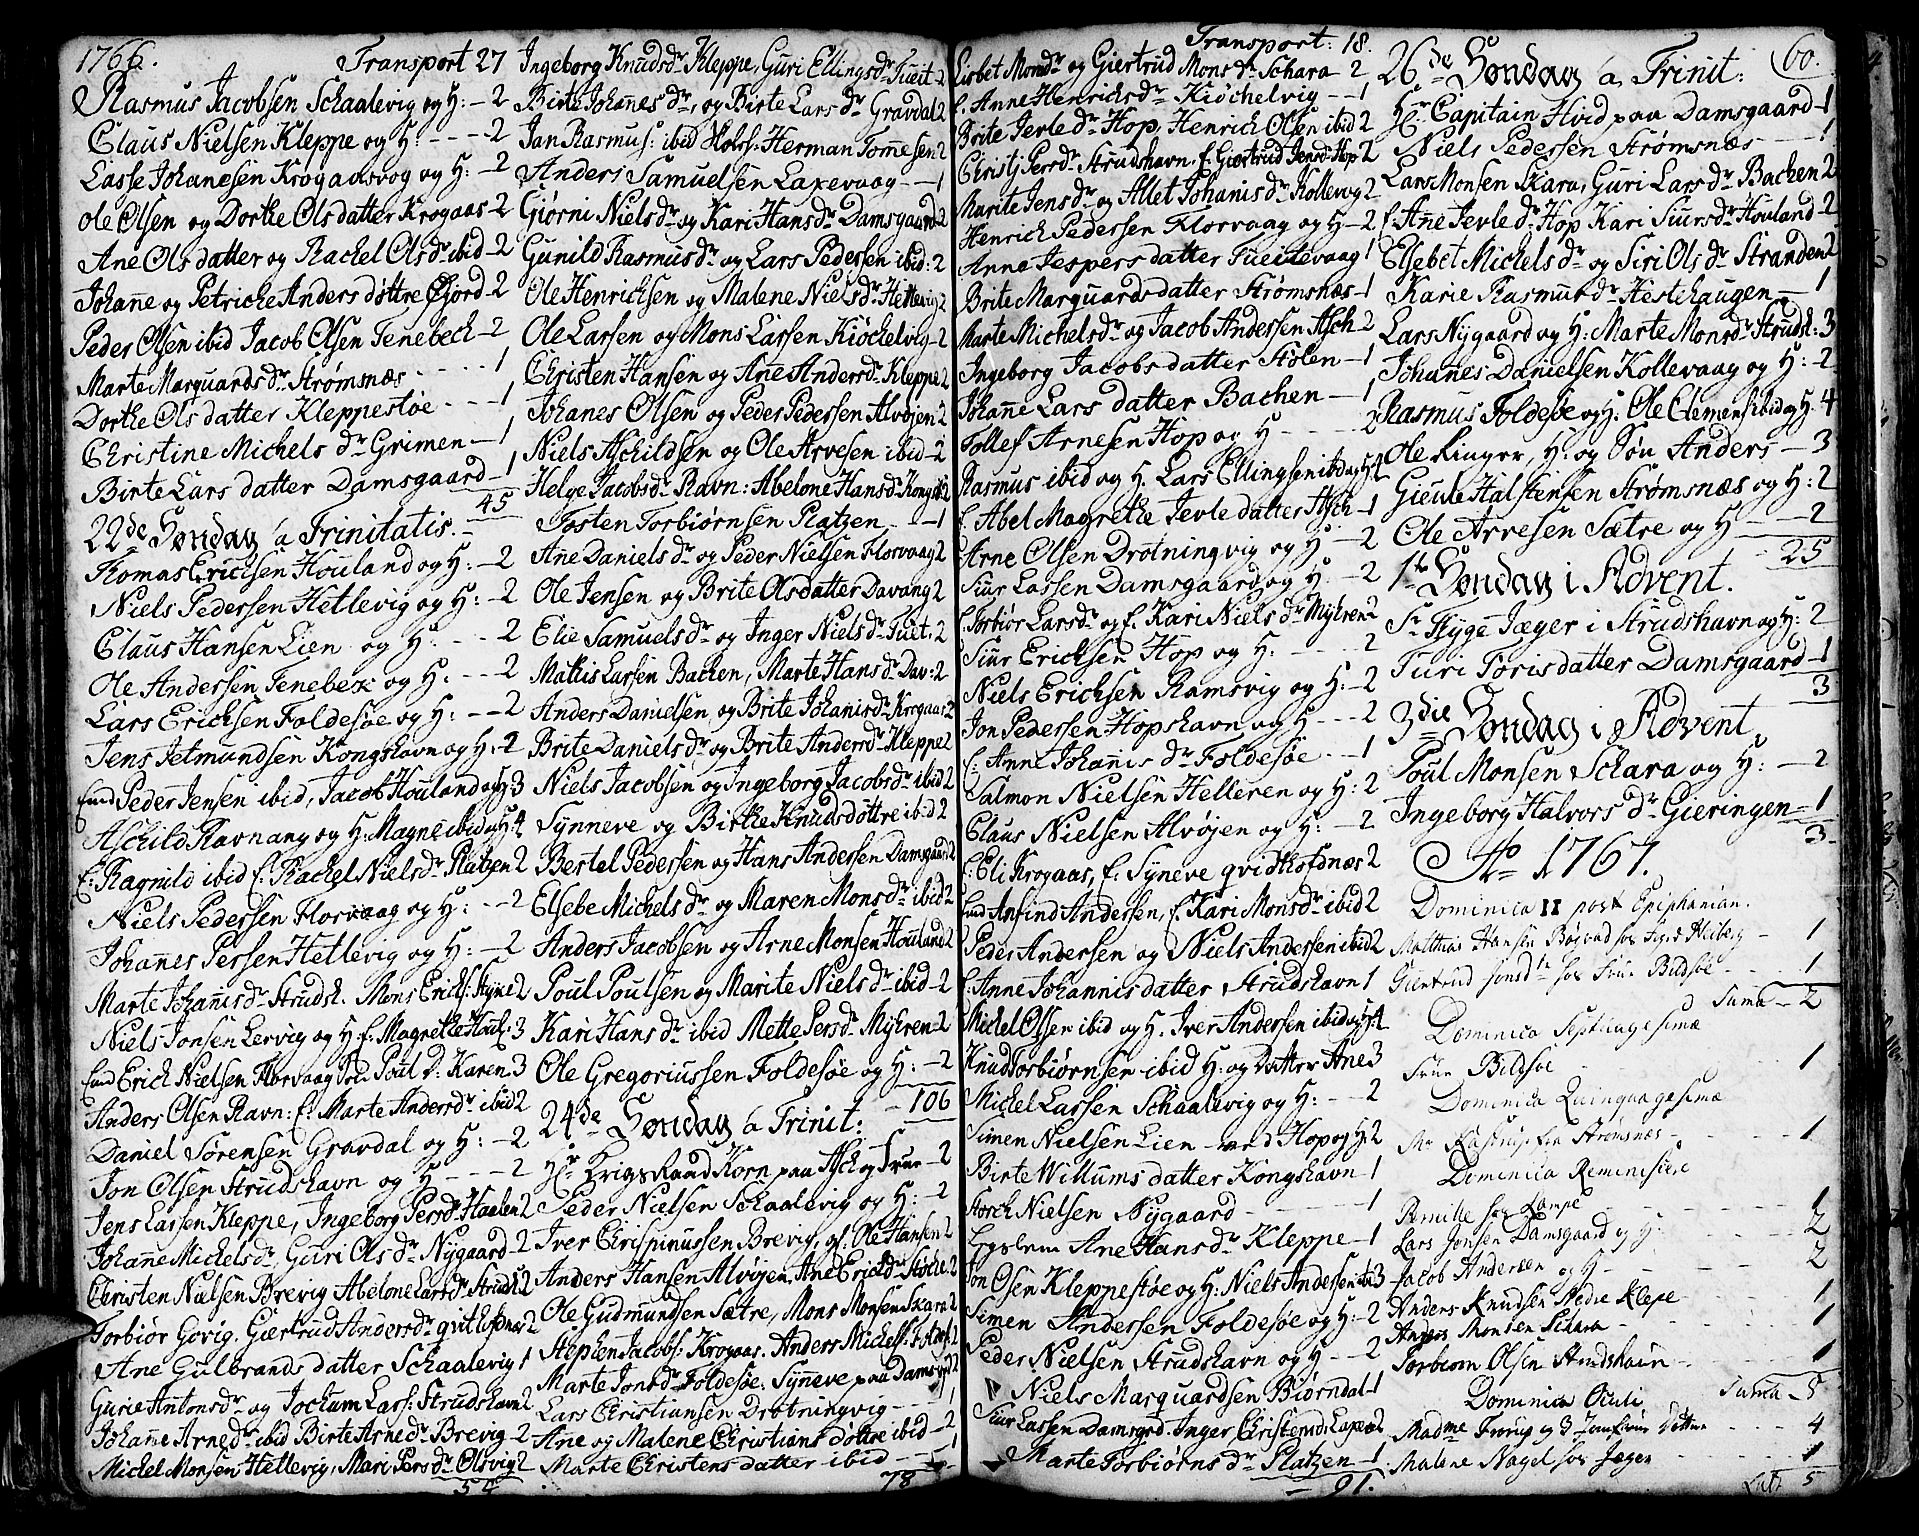 1766.
Transport 27
Rasmus Jacobsen Schaalevig og H: - 2
Claus Nielsen Kleppe og H: - - - 2
Lasse Johanesen Krogaasvog og H: - 2
Ole Olsen og Dorthe Olsdatter Krogaas 2
Ane Olsdatter og Rachel Olsdr ibid - 2
Johanne og Petriche Anders døttre Fjord - 2
Peder Olsen ibid Jacob Olsen Tenebech - 2
Marte Marquardsdr Strømsnæs - - - - 1
Dorthe Olsdatter Kleppestøe - - - 1
Christine Michelsdr Grimen - 1
Birte Larsdatter Damsgaard - 1
45
22de Søndag a Trinitatis.
Thomas Ericksen Houland og H: - 2
Niels Pedersen Hetlevig og H: - 2
Claus Hansen Lien og H: - - - 2
Ole Andersen Tenebex og H: - - 2
Lars Ericksen Foldesøe og H: - - 2
Jens Jetmundsen Kongshavn og H: - 2
Peder Jensen ibid, Jacob Houland og H: 3
Aschild Ravnang og H: Magne ibid og H: 4
f: Ragnild ibid f: Rachel Nielsdr Platzen 2
Niels Pedersen Florvaag og H: - - 2
Johannes Persen Hetlevig og H: - 2
Marte Johanisdr Strudsh. Mons Ericks: 2
Niels Jonsen Lervig og H f: Magrethe Houl: 3
Erich Nielsen Florvaag Poul D: Karen 3
Anders Olsen Ravn: f: Marte Andersdr ibid 2
Daniel Sørensen Gravdal og H: - 2
Jon Olsen Strudshavn og H - - - 2
Jens Lassen Kleppe, Ingeborg Persdr Haalen 2
Johanne Michelsdr, Guri Olsdr Nygaard - 2
Christen Nielsen Brevig Abelone Larsdr Strudsh 2
Torbiør Govig. Giertrud Andersdr 2
Ane Gulbrandsdatter Schaalevig 1
Gurie Antonsdr og Jochum Lars: Strudshavn 2
Johanne Arnedr ibid Birte Arnedr Brevig - 2
Michel Monsen Hetlevig, Mari Persdr Olsvig 2
54
Ingeborg Knudsdr Kleppe, Guri Ellingsdr Tueit - 2
Birte Johanesdr, og Birte Larsdr Gravdal 2
Jan Rasmus: ibid Herman Tomesen 2
Anders Samuelsen Laxevaag - - 1
Giørni Nielsdr og Kari Hansdr Damsgaard 2
Gunild Rasmusdr og Lars Pedersen ibid: 2
Ole Henricksen og Malene Nielsdr Hetlevig 2
Ole Larsen og Mons Larsen Kiøchelvig - 2
Christen Hansen og Ane Andersdr Kleppe 2
Johanes Olsen og Peder Pedersen Alvøjen 2
Niels Aschildsen og Ole Arvesen ibid - 2
Helge Jacobsdr Ravn: Abelone Hansdr Kongsh 2
Tosten Torbiørnsen Platzen - - 1
Ane Danielsdr og Peder Nielsen Florvaag 2
Ole Jensen og Brite Olsdatter Davang 2
Elie Samuelsdr og Inger Nielsdr Tueit: 2
Mathis Larsen Bachen, Marte Hansdr Dav: 2
Anders Danielsen, og Brite Johanisdr Krogaas 2
Brite Danielsdr og Brite Andersdr Kleppe 2
Niels Jacobsen og Ingeborg Jacobsdr ibid 2
Synneve og Birthe Knudsdøttre ibid 2
Bertel Pedersen og Hans Andersen Damsgaard 2
Elsebe Michelsdr og Maren Monsdr ibid 2
Anders Jacobsen og Arne Monsen Houland 2
Poul Poulsen og Marite Nielsdr ibid - 2
Kari Hansdr ibid Mette Persdr Myhren - 2
Ole Gregoriussen Foldesøe og H: - 2
106
24de Søndag a Trinit:
Hr Krigs Raad Korn paa Asch og Frue - 2
Peder Nielsen Schaalevig og H: - 2
Iver Chrispinussen Brevig, gl. Ole Hansen 2
Anders Hansen Alvøjen, Ane Ericksdr 2
Ole Gudmundsen Sætre, Mons Monsen Skara 2
Stephen Jacobs: Krogaas. Anders Michels: Foldes: 2
Marte Jonsdr Foldesøe: Syneve paa Damsgrd 2
Lars Christiansen Drotningvig - - - 1
Ane og Malene Christiansdøttre ibid - 2
Marte Christensdatter ibid - - - 1
78
Transport: 18.
Lisbet Monsdr og Giertrud Monsdr Schara - 2
f. Anne Henricksdr Kiøchelvig - - 1
Brite Jerledr Hop, Henrich Olsen ibid 2
Christj Persdr Strudshavn, f. Giertrud Jensdr Hop 2
Marite Jensdr og Allet Johanisdr Kollevog 2
Henrich Pedersen Florvaag og H - 2
Anna Jespersdatter Tueitevaag 1
Brite Marquardsdatter Strømsnæs - 1
Marte Michelsdr og Jacob Andersen Asch - 2
Ingeborg Jacobsdatter Stolen - 1
Johanne Larsdatter Bachen - 1
Tollef Arnesen Hop og H - - - - 2
Rasmus ibid og H. Lars Ellingsen ibid og H 4
f. Abel Magrethe Jerledatter Asch - 1
Arne Olsen Drotningvig og H: - 2
Siur Lassen Damsgaard og H: - 2
f. Torbiør Larsdr og f. Kari Nielsdr Myhren 2
Siur Ericksen Hop og H: - - - - 2
Niels Ericksen Ramsvig og H: - 2
Jon Pedersen Hopshavn og H - - - 2
f: Anne Johanisdr Foldesøe - - - 1
Salmon Nielsen Helleren og H: 2
Claus Nielsen Alvøjen og H: - 2
f. Eli Krogaas, f. Syneve 2
Anfind Andersen, f. Kari Monsdr ibid 2
Peder Andersen og Niels Andersen ibid 2
f. Anne Johannisdatter Strudshavn 1
Michel Olsen ibid og H. Iver Andersen ibid og H 4
Knud Torbiørnsen ibid H: og Datter Ane 3
Michel Larsen Schaalevig og H: - - 2
Simen Nielsen Lien ved Hop og H: 2
Birte Willumsdatter Kongshavn - 1
Storch Nielsen Nygaard - - - - - 1
Ane Hansdr Kleppe - 1
Jon Olsen Kleppestøe og H: Niels Andersen ibid 3
Simen Andersen Foldesøe og H: - 2
Peder Nielsen Strudshavn og H - - 2
Niels Marquardsen Biørndal - 1
Siur Lassen Damsgrd. Inger Christensdr Laxev: 2
Marte Torbiørnsdr Platzen - 1
91.
60.
26de Søndag a Trinit:
Hr Capitain Hvid paa Damsgaard - 1
Niels Pedersen Strømsnæs - - - 1
Lars Monsen Skara, Guri Larsdr Bachen 2
f. Ane Jerledr Hop Kari Siursdr Houland - 2
Elsebet Michelsdr og Siri Olsdr Stranden 2
Karie Rasmusdr Hestehaugen - - 1
Lars Nygaard og H: Marte Monsdr Strudsh: 3
Johanes Danielsen Kollevaag og H: - 2
Rasmus Foldesøe og H: Ole Clemens: ibid og H: 4
Ole Ringer, H: og Søn Anders - 3
Gieule Halstensen Strømsnæs og H: 2
Ole Arvesen Sætre og H - - - 2
25
1te Søndag i Advent.
Sr Thyge Jæger i Strudshavn og H: 2
Turi Torisdatter Damsgaard - 1
3
3die Søndag i Advent,
Poul Monsen Schara og H: - 2
Ingeborg Halvorsdr Gieringen - 1
3
Ao 1767.
Dominica II post Epiphanian.
Matthias Hansen - 1
Giertrud hos Frue Bildsøe - - - - 1
Suma - 2
Dominica Septuagesimæ
Frue Bildsøe - - - 1
Dominica Quinquagesimæ
Strømsnæs - - - - 1
Dominica Reminiscere
Pernille hos Lampe - - - - 1
Lars Jonsen Damsgaard og H: - - 2
Jacob Andersen og H - - - - 2
Anders Knudsen Nedre Klepe - - - 1
Anders Monsen Schara - - - - 1
Torbiorn Olsen Strudshavn - - - 1
Dominica Oculi
Suma - 5
Madme og 3 4
Malene Nagel hos Jæger - - - 1
Lat: 5